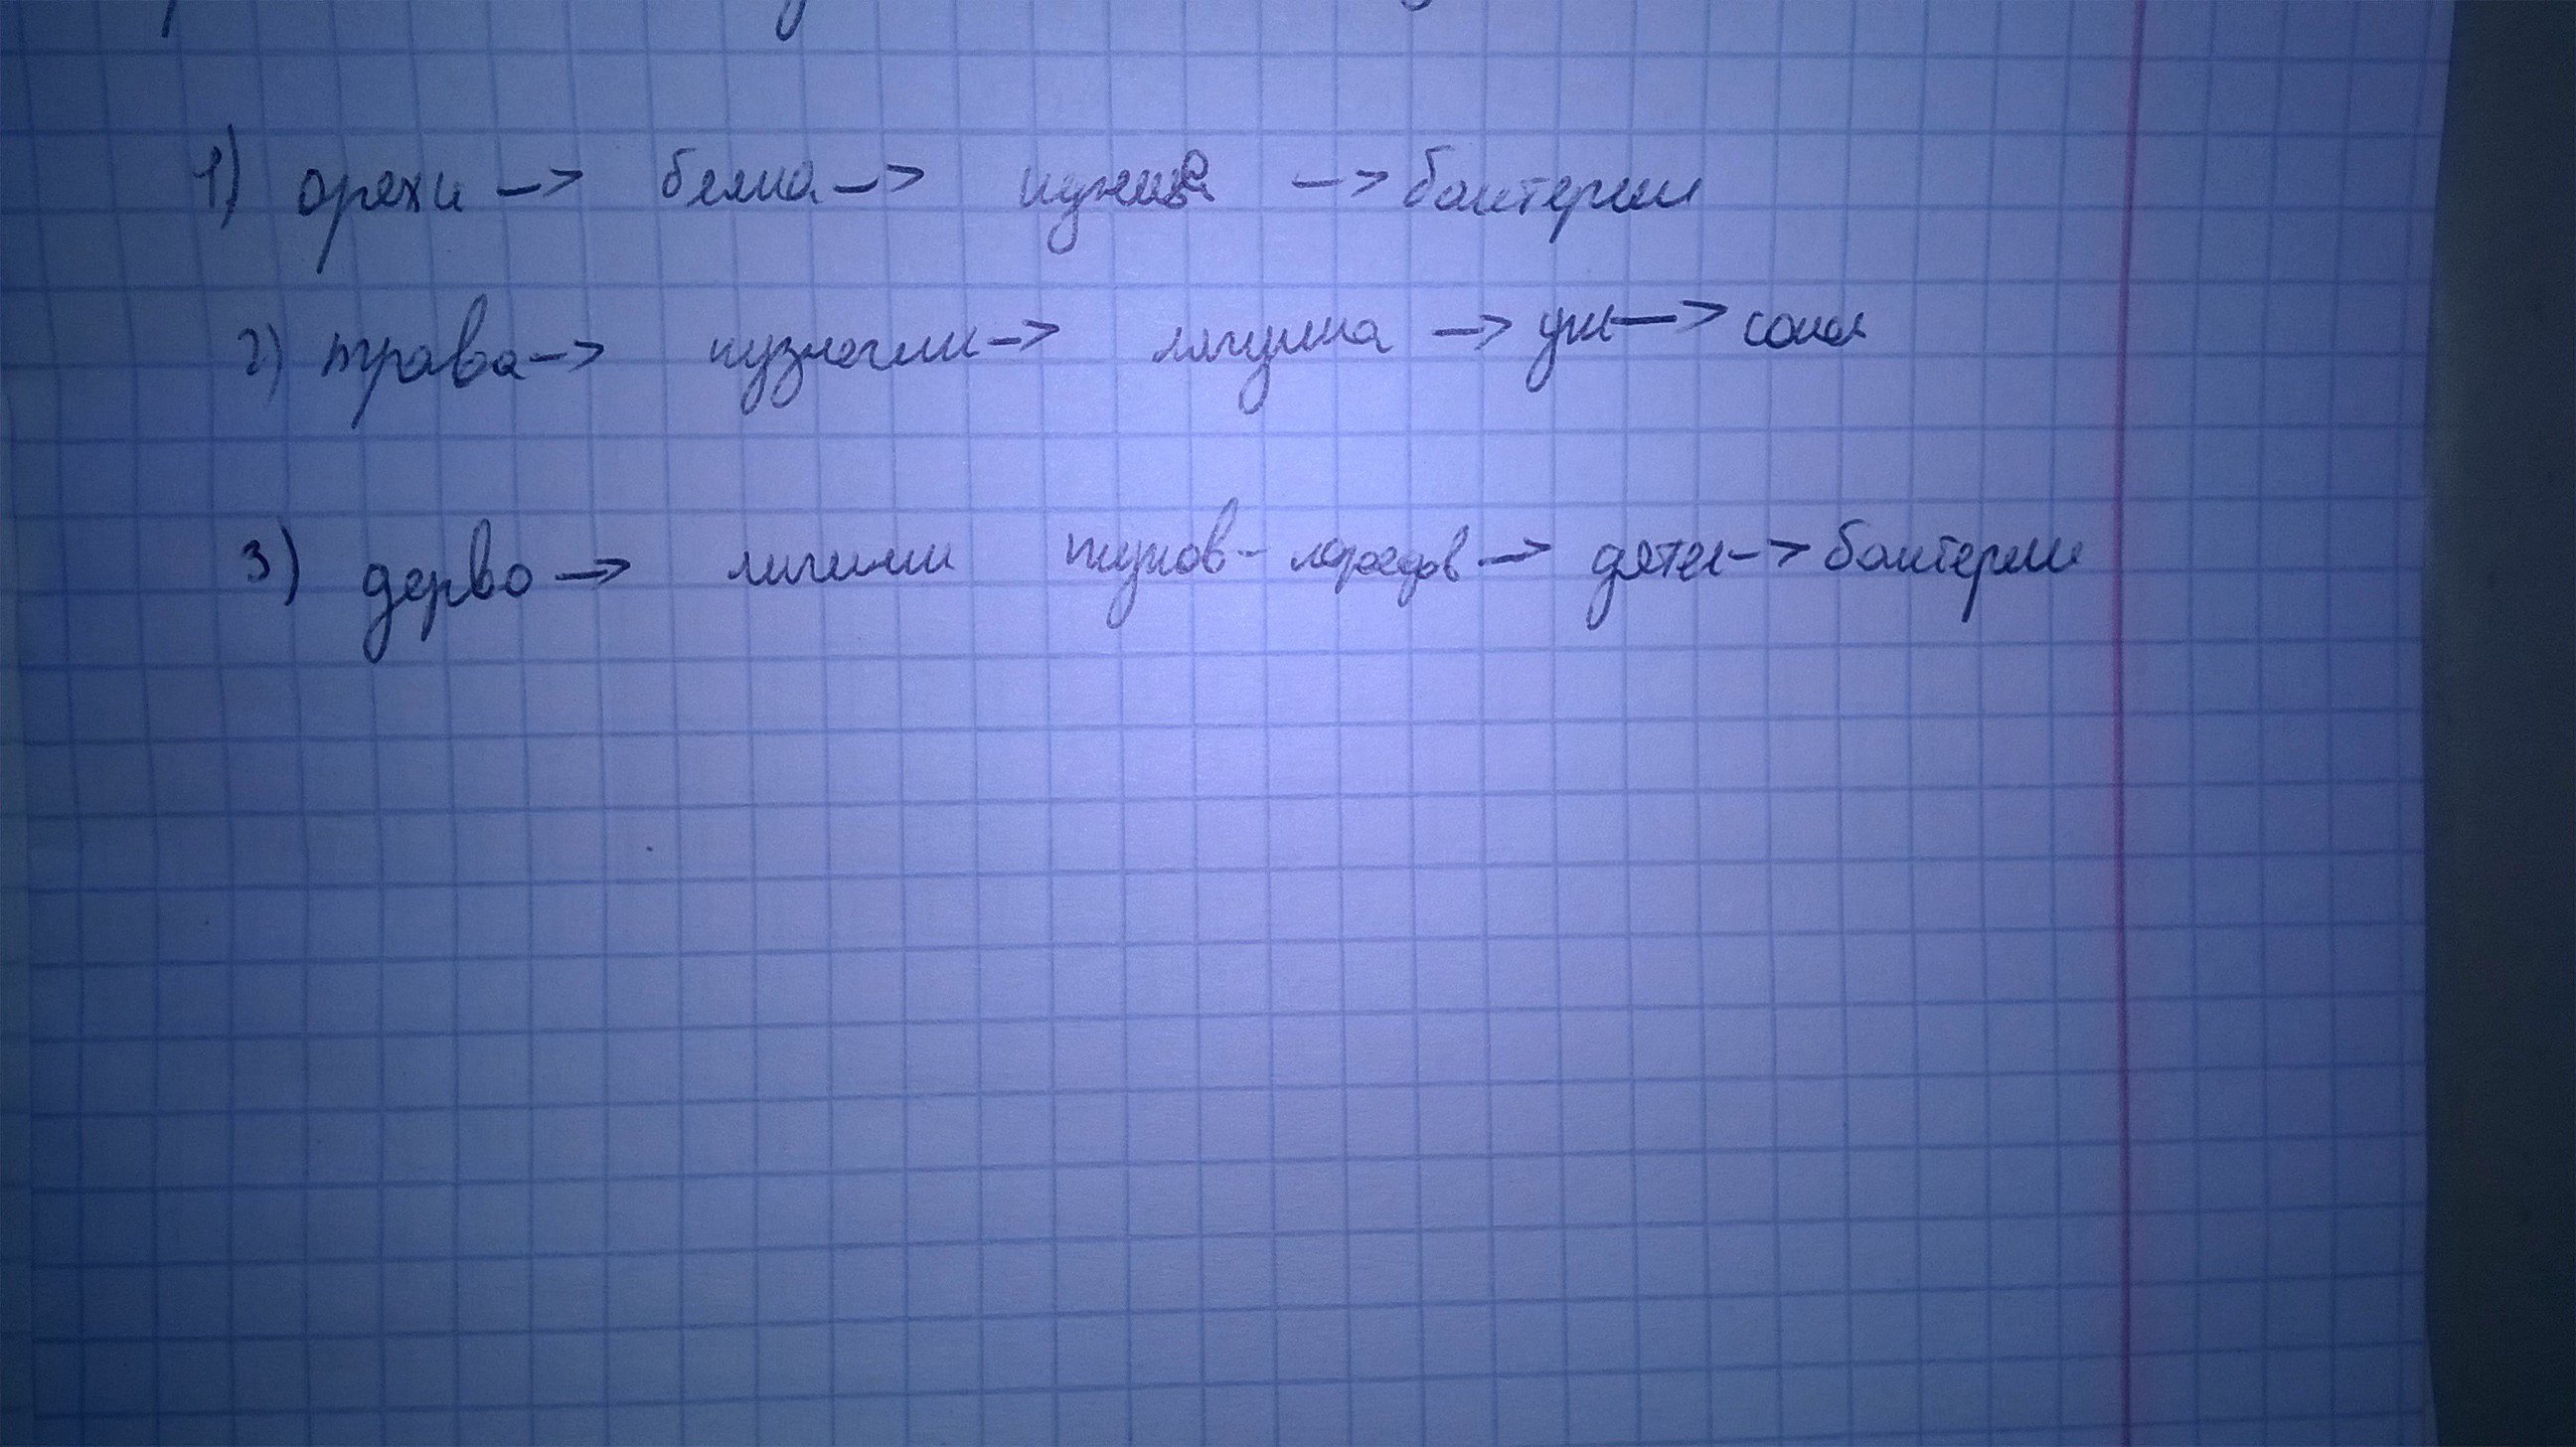 1) орехи -> белка -> куница -> бактерии
2) трава -> кузнечик -> лягушка -> уж -> сокол
3) дерво -> личинки жуков - короедов -> дятел -> бактерии